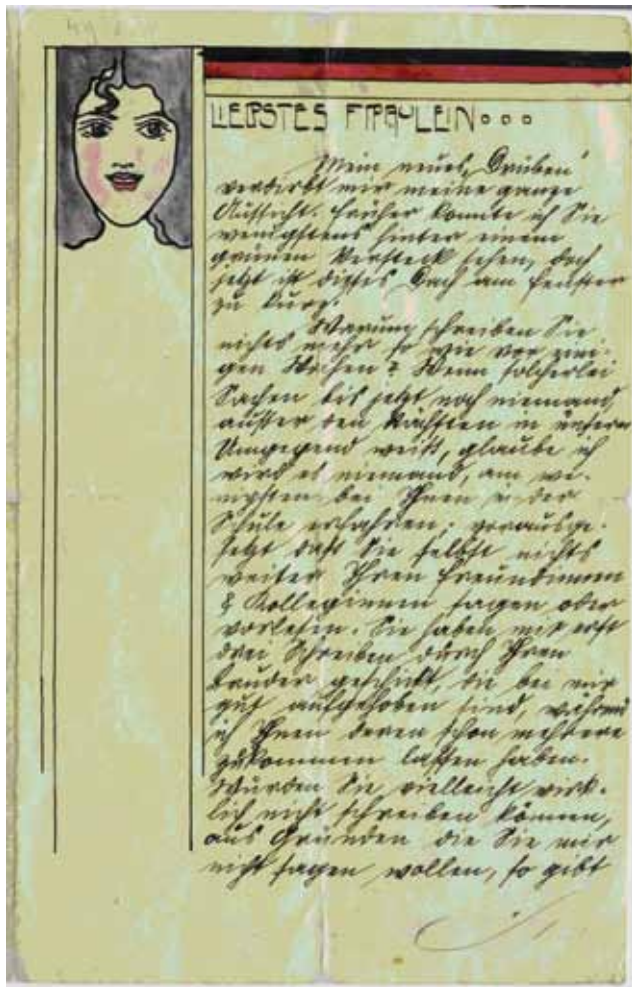 LIEBSTES FRÄULEIN...
Mein neues „Drüben"
verdirbt mir meine ganze
Aussicht. Früher konnte ich Sie
wenigstens hinter einem
grünen Versteck sehen, doch
jetzt ist dieses Dach am Fenster
zu kurz.
Warum schreiben Sie
nichts mehr so wie vor eini-
gen Wochen? Wenn solcherlei
Sachen bis jetzt noch niemand
ausser den Nächsten in unserer
Umgegend weiß, glaube ich
wird es niemand, am we-
nigsten bei Ihnen in der
Schule erfahren; vorausge-
setzt daß Sie selbst nichts
weiter Ihren Freundinnen
& Kolleginnen sagen oder
vorlesen. Sie haben mir erst
drei Schreiben durch Ihren
Bruder geschickt, die bei mir
gut aufgehoben sind, während
ich Ihnen deren schon mehrere
zukommen lassen haben.
Würden Sie vielleicht wirk-
lich nicht schreiben können,
aus Gründen die Sie mir
nicht sagen wollen, so gibt